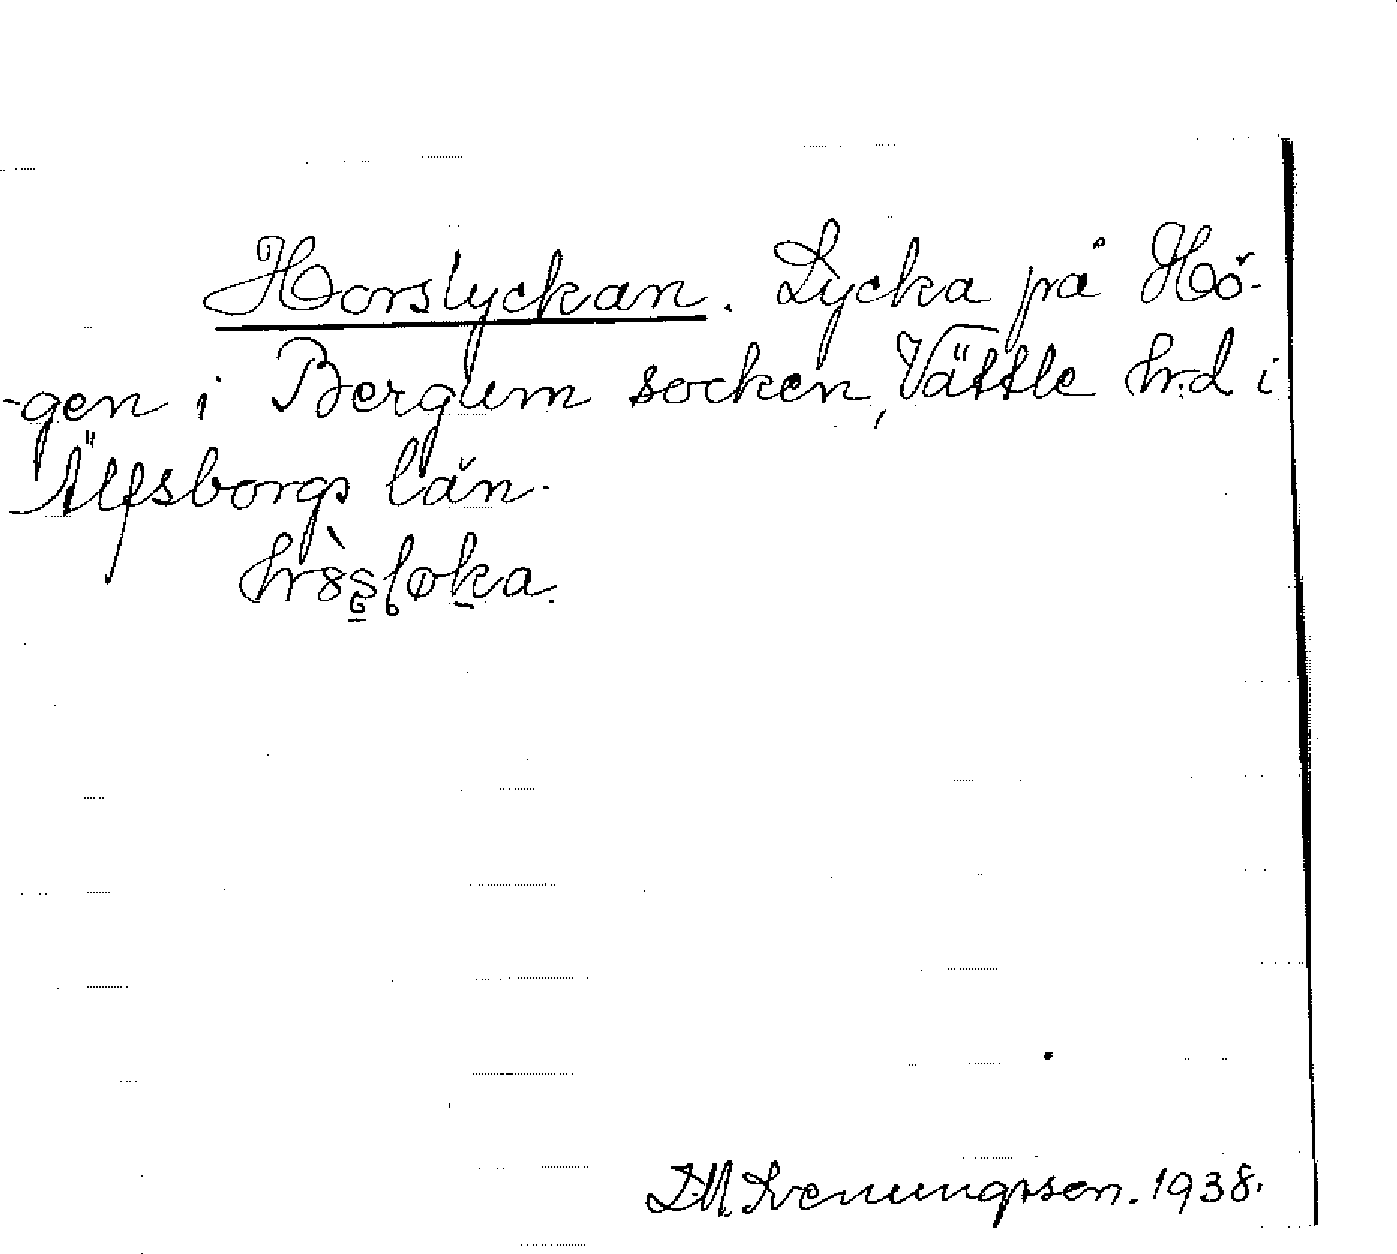 Horslyckan. Lycka på Hö-
-gen i Bergum socken, Vättle hrd i
Älfsborgs län.
D.M. Svenungsson. 1938.